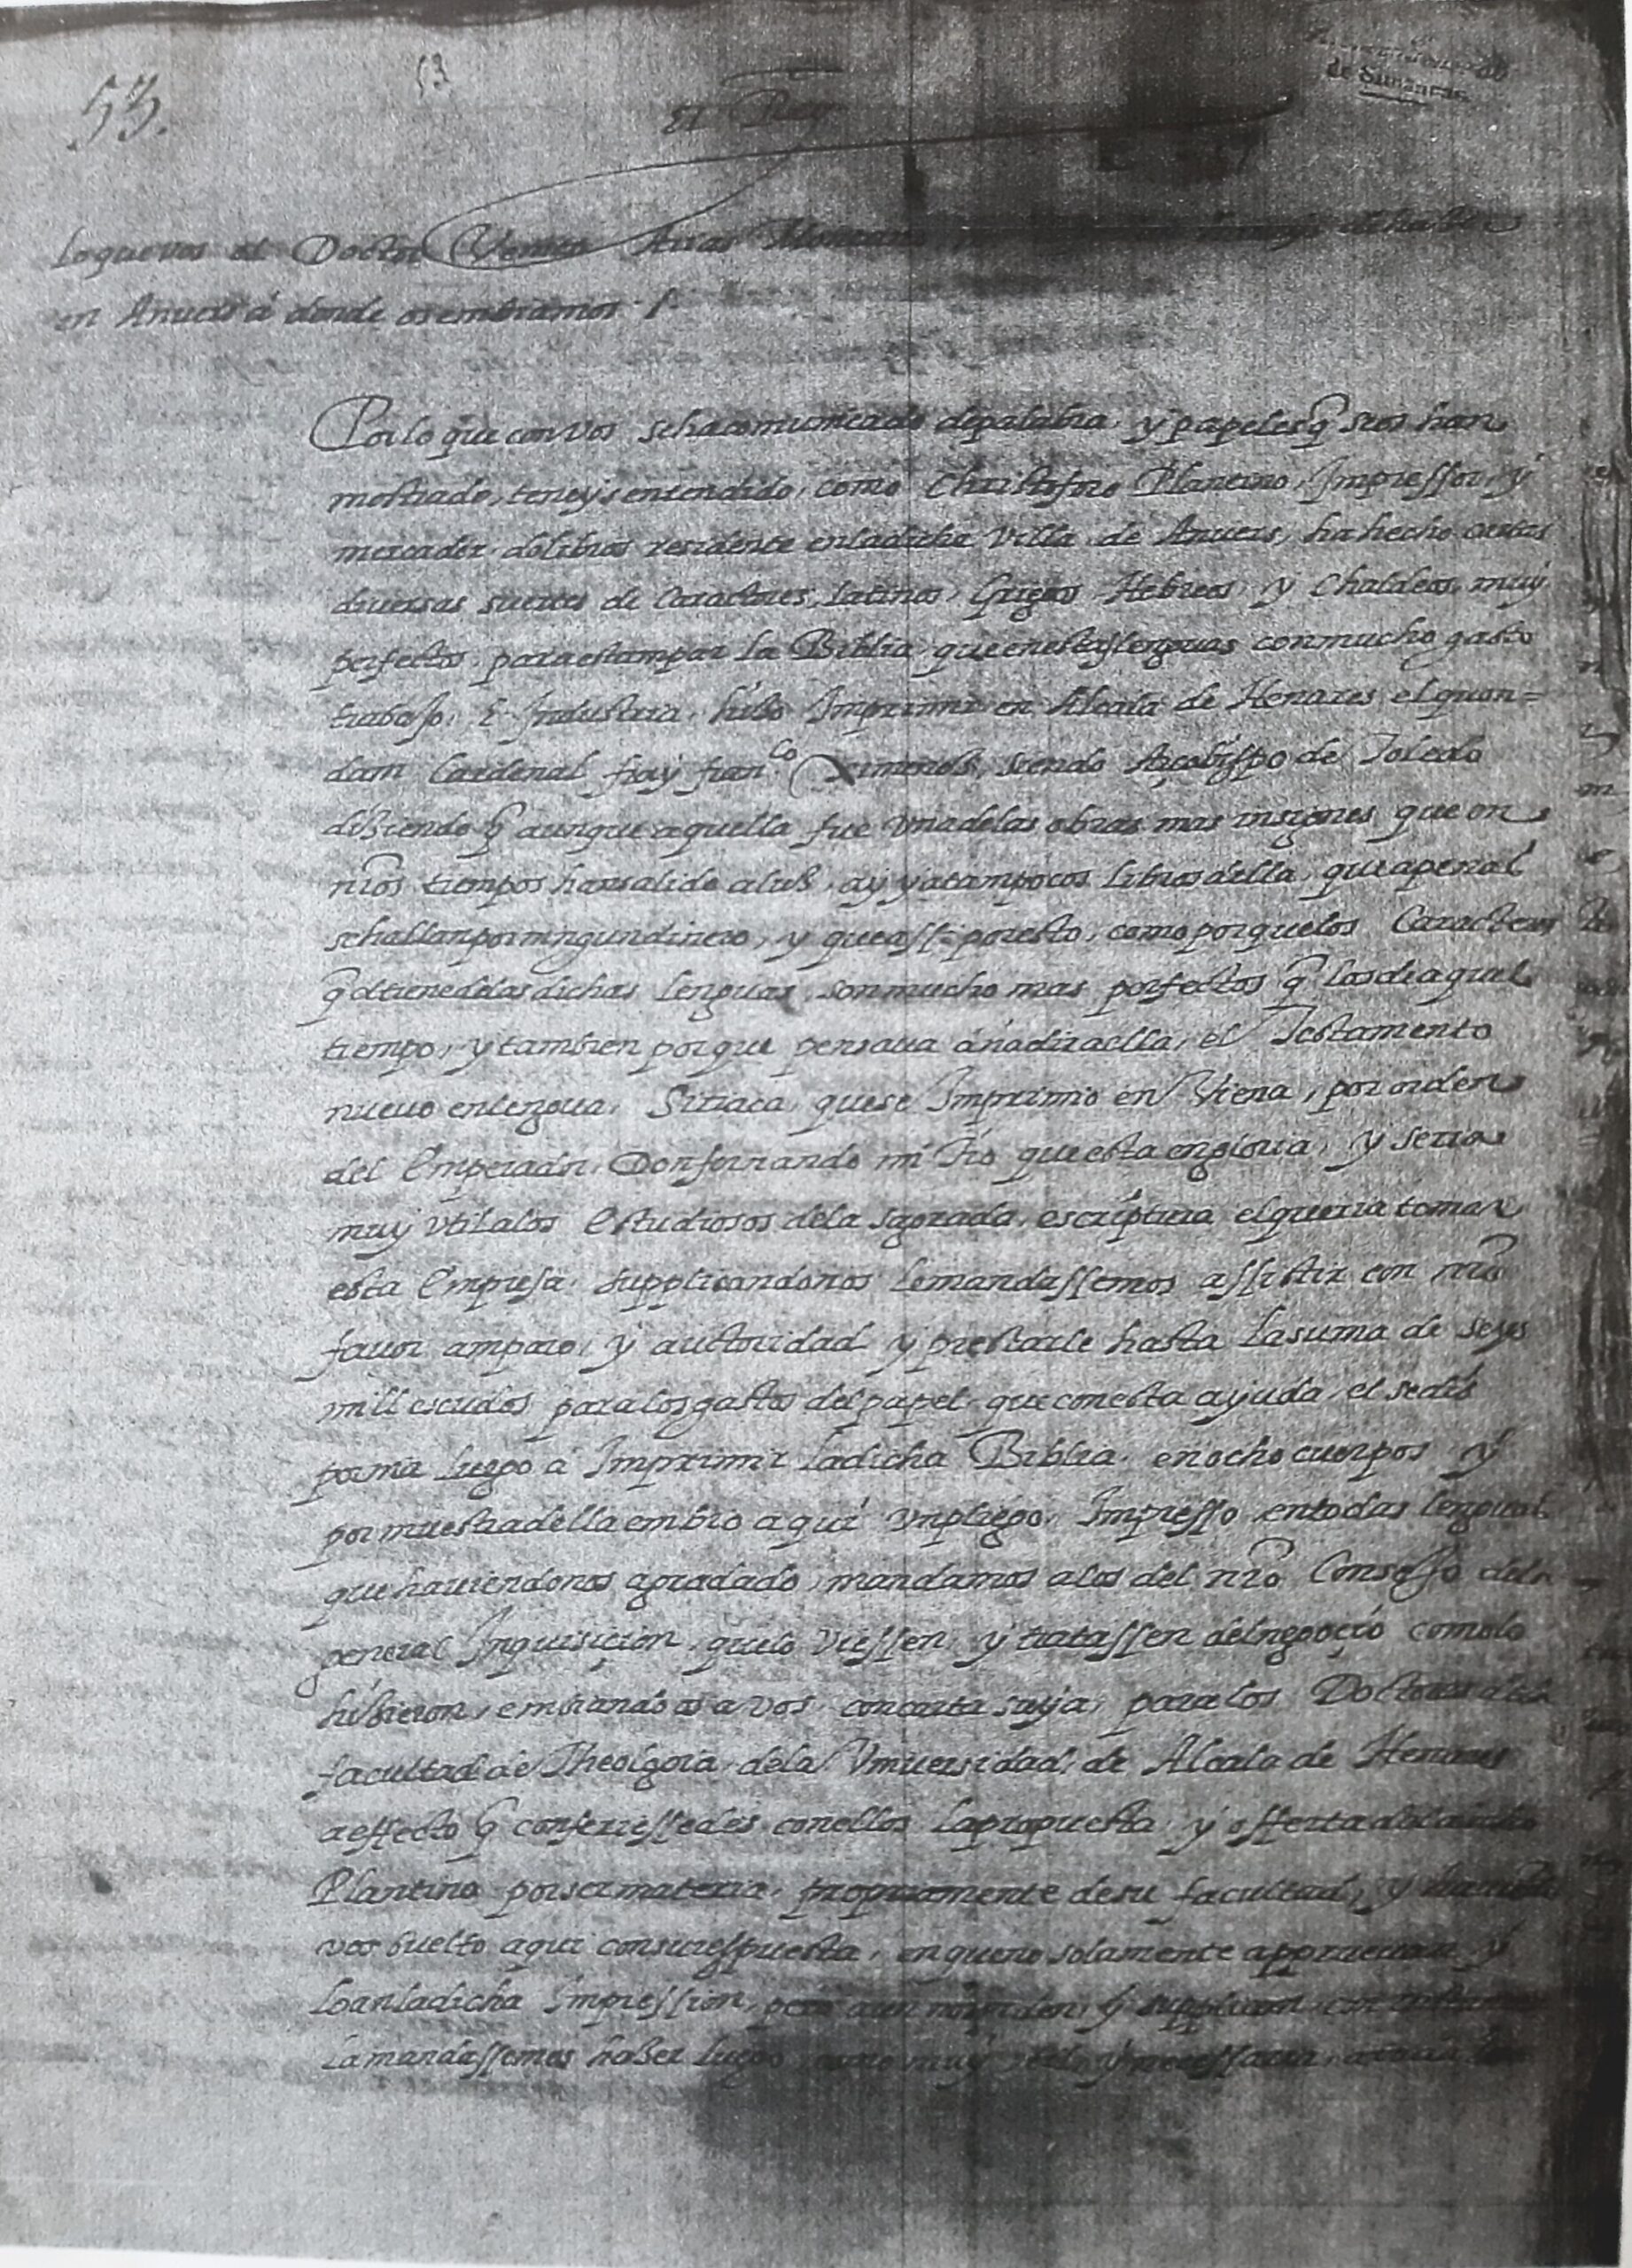 53.
53
El Rey
de Simancas
Lo que vos el Doctor Benito Arias Montano
en Anvers á donde os embiamos
Por lo que con vos se ha comunicado de palabra, y papeles q̃ se os han
mostrado, teneys entendido, como Christoforo Plantino, Impressor, y
mercader de libros residente en la dicha Villa de Anvers, ha hecho
diversas suertes de Caractores, latinos, Griegos Hebreos, y Chaldeos, muy
perfectos, para estampar la Biblia que en estas lenguas con mucho gasto
trabajo, E Industria, hizo Imprimir en Alcala de Henares el quon=
dam Cardenal fray franᶜᵒ Ximenez, siendo Arçobispo de Toledo
diziendo q̃ aunque aquella fue una de las obras mas insignes que en
nr̃os tiempos han salido a luz, ay ya tam pocos libros della, que apenas
se hallan por ningun dinero, y que assi por esto, como porque los Caracteres
q̃ el tiene de las dichas lenguas, son mucho mas perfectos q̃ los de aquel
tiempo, y tambien porque pensava añadir a ella, el Testamento
nuevo en lengua, Siriaca, que se Imprimio en Viena, por orden
del Emperador, Don fernando mi tio que esta en gloria, y seria
muy util a los Estudiosos de la sagrada, escriptura el querria tomar
esta Empresa, supplicandonos le mandassemos assistir con nr̃o
favor amparo, y auctoridad y prestarle hasta la suma de seys
mill escudos para los gastos del papel, que con esta ayuda, el
pornia luego á Imprimir la dicha Biblia, en ocho cuerpos y
por muestra della embio aqui un pliego, Impresso en todas lenguas
que haviendonos agradado, mandamos a los del nr̃o Consejo de la
general Inquisicion, que lo viessen, y tratassen del negoçio como lo
hizieron, embiandoos a vos con carta suya, para los Doctores de la
facultad de Theolgoia, de la Universidad, de Alcala de Henares
a effecto q̃ confiriessedes con ellos la propuesta, y offerta del dicho
Plantino por ser materia, propriamente de su facultad, y haviendo
vos buelto aqui con su respuesta, en que no solamente appruevan y
loan la dicha Impression, pero aun nos piden, y supplican
la mandassemos hazer luego, como muy util, y necessaria,